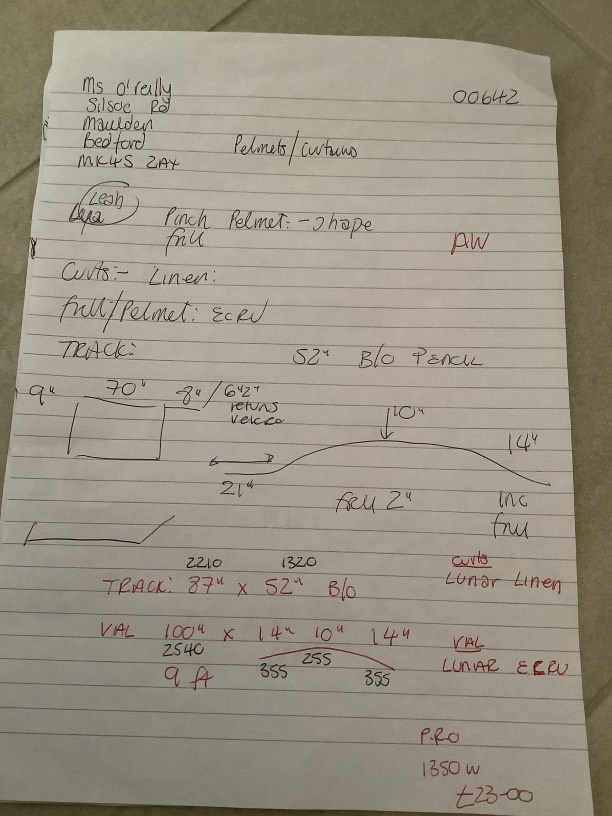 Ms O'reilly
00642
Silsoe Rd
Maulden
Bedford
Pelmets/Curtains
MK45 2AY
Leah
Pinch Pelmet: - Shape
frill
AW
Curts:- Linen:
frill/Pelmet: ECRU
TRACK:
52" B/O PENCIL
9" 70" 8" / 6"2"
returns
velcro
10"
14"
21"
frill 2"
inc
frill
2210 1320
curts
TRACK: 87" x 52" B/O
Lunar Linen
VAL 100" x 14" 10" 14"
VAL
2540
255
LUNAR ECRU
9 ft
355 355
PRO
1350 W
£23-00